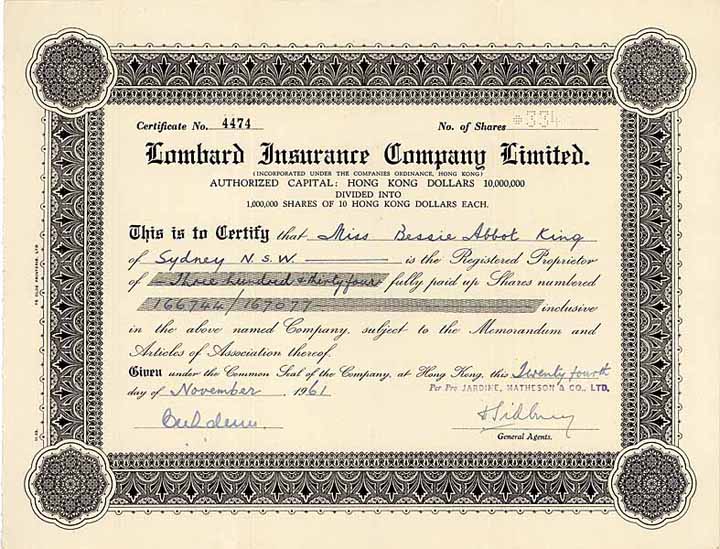 Certificate No. 4474
No. of Shares *334
Lombard Insurance Company Limited.
(INCORPORATED UNDER THE COMPANIES ORDINANCE, HONG KONG)
AUTHORIZED CAPITAL: HONG KONG DOLLARS 10,000,000
DIVIDED INTO
1,000,000 SHARES OF 10 HONG KONG DOLLARS EACH.
This is to Certify that Miss Bessie Abbot King
of Sydney N.S.W. is the Registered Proprietor
of Three hundred & thirty four fully paid up Shares numbered
166744/167077 inclusive
in the above named Company, subject to the Memorandum and
Articles of Association thereof.
Given under the Common Seal of the Company, at Hong Kong, this Twenty fourth
day of November, 1961
Per Pro JARDINE, MATHESON & CO., LTD.
General Agents.